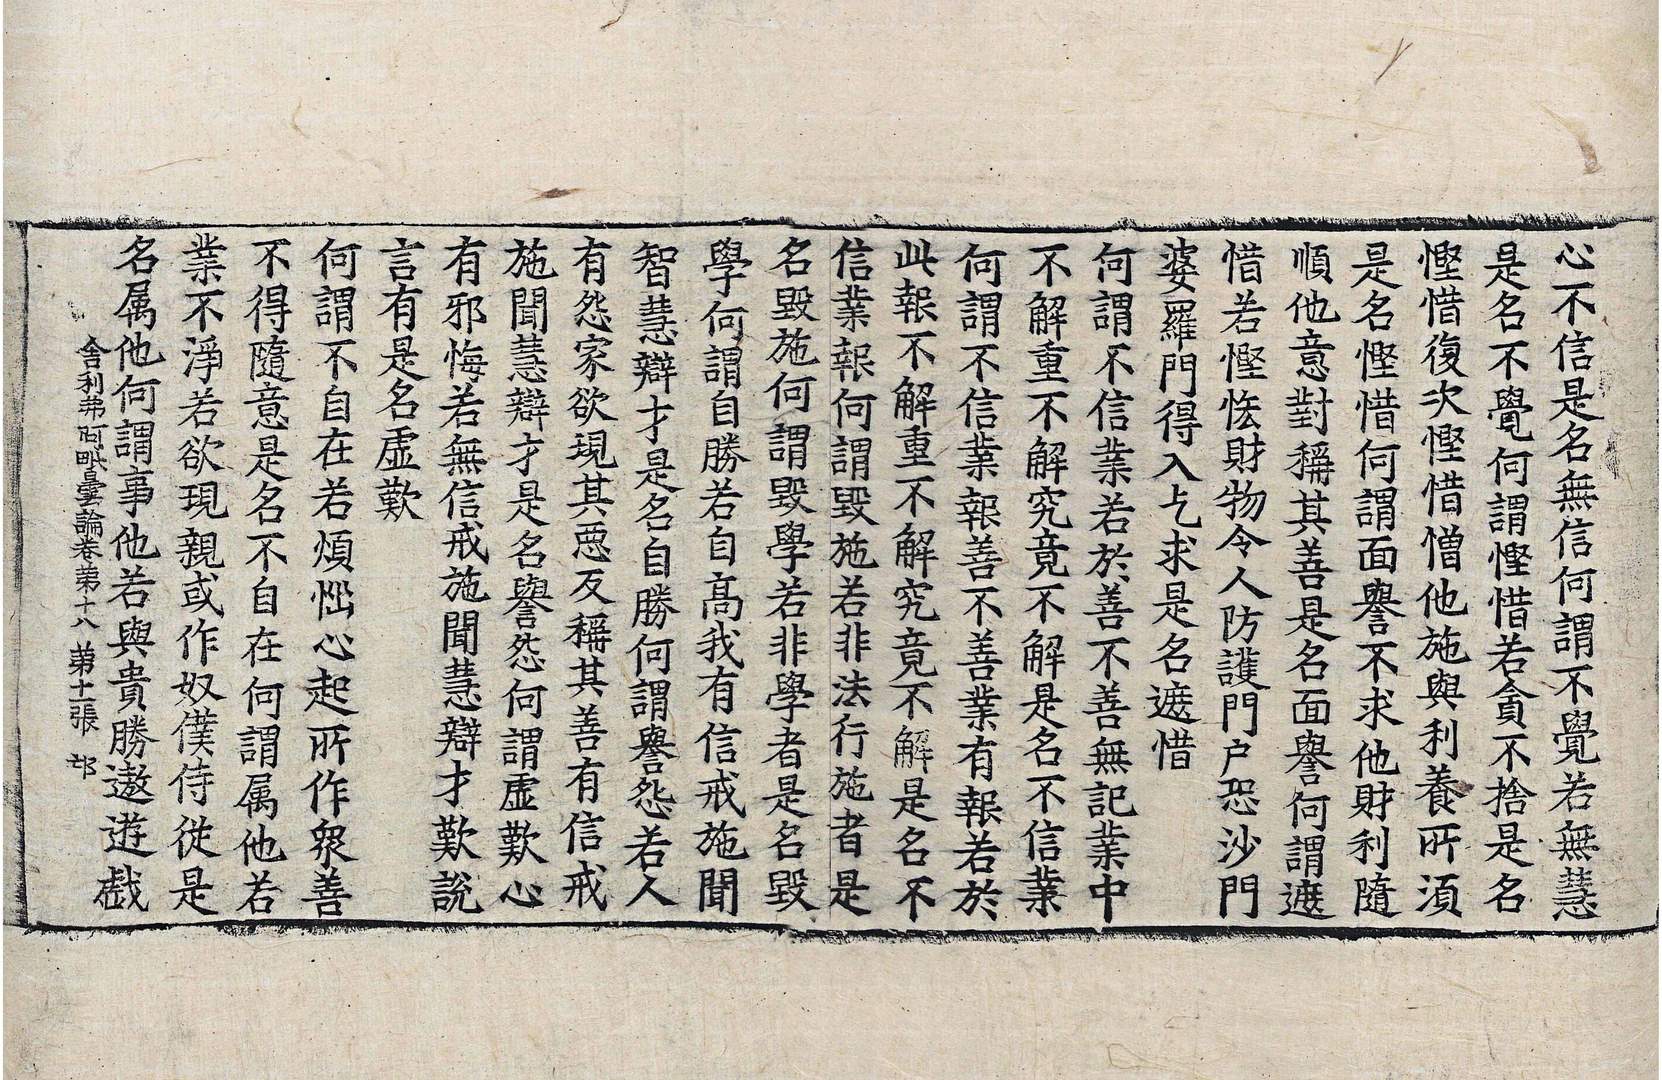 心不信是名無信何謂不覺若無慧
是名不覺何謂慳惜若貪不捨是名
慳惜復次慳惜憎他施與利養所湏
是名慳惜何謂面譽不求他財利隨
順他意對稱其善是名面譽何謂遮
惜若慳悋財物令人防護門户恐沙門
婆羅門得入乞求是名遮惜
何謂不信業若於善不善無記業中
不解重不解究竟不解是名不信業
何謂不信業報善不善業有報若於
此報不解重不解究竟不解是名不
信業報何謂毀施若非法行施者是
名毀施何謂毀學若非學者是名毀
學何謂自勝若自高我有信戒施聞
智慧辯才是名自勝何謂譽怨若人
有怨家欲現其惡反稱其善有信戒
施聞慧辯才是名譽怨何謂虛歎心
有邪悔若無信戒施聞慧辯才歎說
言有是名虛歎
何謂不自在若煩惱心起所作衆善
不得隨意是名不自在何謂属他若
業不淨若欲現親或作奴僕侍從是
名属他何謂事他若與貴勝遨遊戲
舍利弗阿毗曇論卷第十八 第十二張